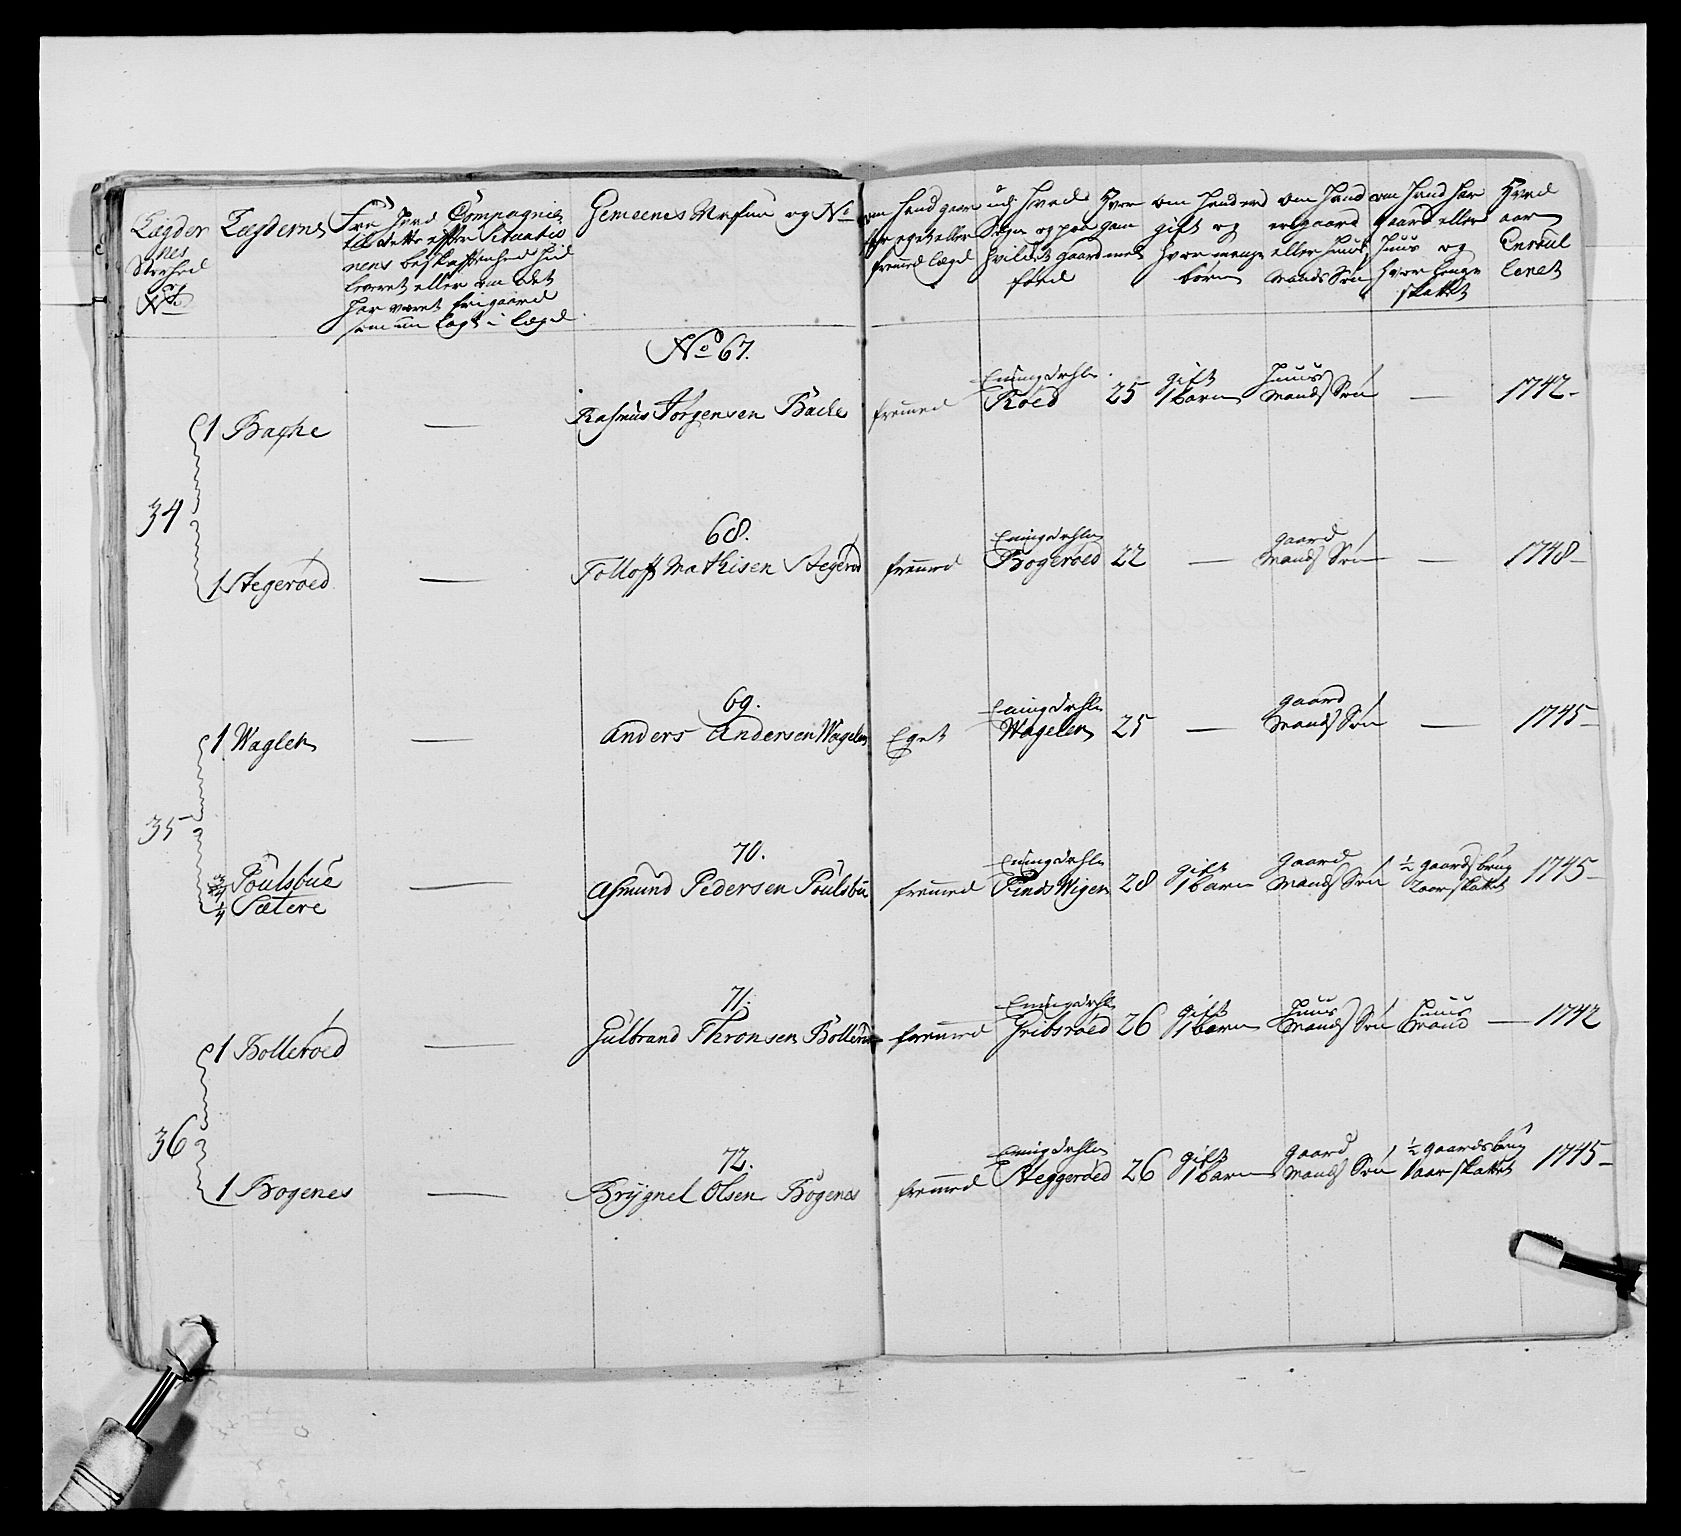 Lægder
nes
Størhed
og
No
Lægderne
Fra hvad Compagnie
til dette efter Situatio
nens beskaffenhed hid
leveret eller om det
har været frigaard
som nu lagt i Lægd.
Gemeenes Nafne og No
om hand gaar
for eget eller
fremed lægd
udi hvad
Sogn og paa
hvilket gaard
fød
Hvor
gam
mel
om hand er
gift og
hvor mange
børn
om hand
er gaard
eller huus
mands Søn
om hand har
gaard eller
huus og
hvor lenge
skattet
Hvad
aar
Enroul
leret
No 67.
34
1 Bache
—
Rasmus Jørgensen Bache
fremed
Enningdahlen
Røed
25
gift
1 barn
huus
mands Søn
—
1742-
68.
1 Stegerøed
—
Tolloff Mathisen Stegerød
fremed
Enningdahlen
Bogerøed
22
—
gaard
mands Søn
—
1748-
69.
35
1 Waglen
—
Anders Andersen Wagelen
Eget
Enningdahlen
Wagelen
25
—
gaard
mands Søn
—
1745-
70.
3/4 Poulsbue
1/4 Sætere
—
Asmund Pedersen Poulsbue
fremed
Enningdahlen
Findsvigen
28
gift
1 barn
gaard
mands Søn
1/2 gaards brug
2 aar skattet
1745-
71.
36
1 Bollerøed
—
Gulbrand Thronsen Bollerøe
fremed
Enningdahlen
Hribsrøed
26
gift
1 barn
huus
mands Søn
huus
mand
—
1742
72.
1 Bogenes
—
Brygnel Olsen Bogenes
fremed
Enningdahlen
Steggerøed
26
gift
1 barn
gaard
mands Søn
1/2 gaards brug
1 aar skattet
1745-